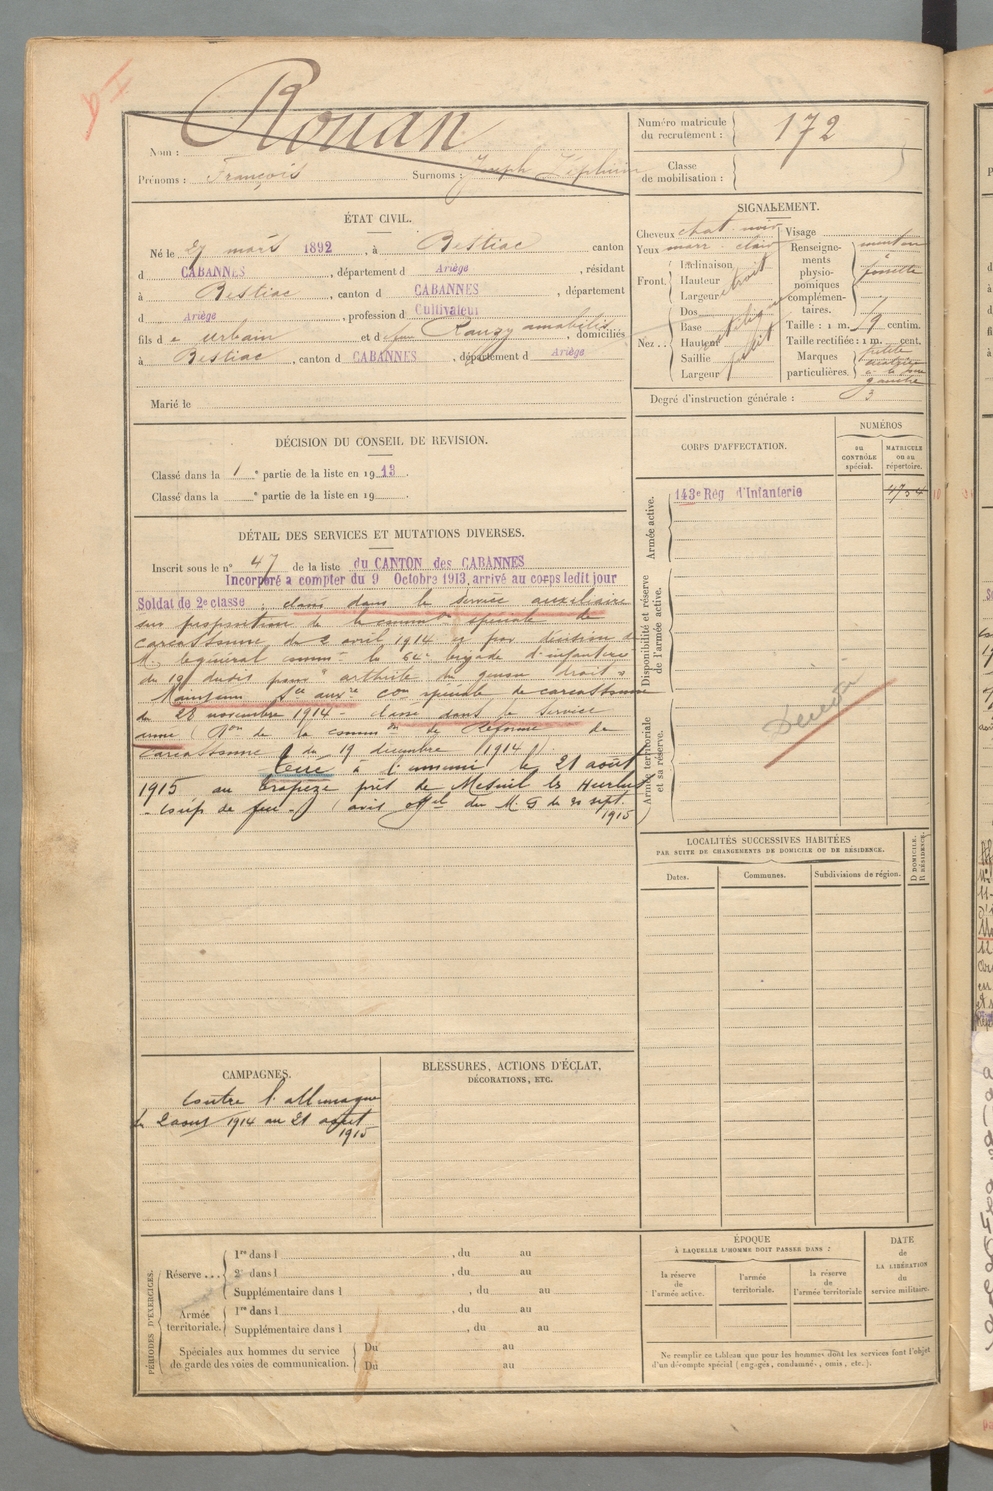 Nom : Rouan
Prénoms : François Surnoms : Joseph Zéphirin
Numéro matricule du recrutement : 172
Classe de mobilisation :
ÉTAT CIVIL.
Né le 27 mars 1892, à Bestiac canton
d CABANNES, département d Ariège, résidant
à Bestiac, canton d CABANNES, département
d Ariège, profession d Cultivateur
fils de Urbain et de Rauzy amabilis, domiciliés
à Bestiac, canton d CABANNES, département d Ariège
Marié le
SIGNALEMENT.
Cheveux chat. noir
Yeux marr. clair
Front. Inclinaison
Hauteur
Largeur étroit
Nez.. Dos
Base
Hauteur
Saillie
Largeur petit
Visage
Renseignements physionomiques complémentaires. menton à fossette
Taille : 1 m. 79 centim.
Taille rectifiée : 1 m. cent.
Marques particulières. petite cicatrice à la joue gauche
Degré d'instruction générale : 3
DÉCISION DU CONSEIL DE REVISION.
Classé dans la 1 e partie de la liste en 1913.
Classé dans la e partie de la liste en 19 .
CORPS D'AFFECTATION.
NUMÉROS
au CONTRÔLE spécial.
MATRICULE ou au répertoire.
Armée active.
143e Rég d'Infanterie 4754
Disponibilité et réserve de l'armée active.
Armée territoriale et sa réserve.
Décédé
DÉTAIL DES SERVICES ET MUTATIONS DIVERSES.
Inscrit sous le n° 47 de la liste du CANTON des CABANNES
Incorporé à compter du 9 Octobre 1913, arrivé au corps ledit jour
Soldat de 2e classe, classé dans le service auxiliaire
sur proposition de la comm on spéciale de
Carcassonne du 2 avril 1914 et par décision de
M. le général comm t la 64e brigade d'infanterie
du 19 dudit pour "arthrite du genou droit"
Maintenu Sce auxre con spéciale de Carcassonne
du 28 novembre 1914 - classé dans le service
armé (Don de la common de Réforme de
Carcassonne du 19 décembre 1914)
Tué à l'ennemi le 21 août
1915 au Trapèze près de Mesnil les Hurlus
- coup de feu - (avis offel du M. G du 20 sept.
1915
LOCALITÉS SUCCESSIVES HABITÉES
PAR SUITE DE CHANGEMENTS DE DOMICILE OU DE RÉSIDENCE.
Dates. Communes. Subdivisions de région. D DOMICILE. R RÉSIDENCE.
CAMPAGNES.
Contre l'allemagne
du 2 aout 1914 au 21 août
1915
BLESSURES, ACTIONS D'ÉCLAT,
DÉCORATIONS, ETC.
PÉRIODES D'EXERCICES.
Réserve... 1re dans l , du au
2e dans l , du au
Supplémentaire dans l , du au
Armée territoriale. 1re dans l , du au
Supplémentaire dans l , du au
Spéciales aux hommes du service de garde des voies de communication. Du au
Du au
ÉPOQUE
À LAQUELLE L'HOMME DOIT PASSER DANS :
la réserve de l'armée active.
l'armée territoriale.
la réserve de l'armée territoriale
DATE de LA LIBÉRATION du service militaire.
Ne remplir ce tableau que pour les hommes dont les services font l'objet
d'un décompte spécial (engagés, condamnés, omis, etc.).